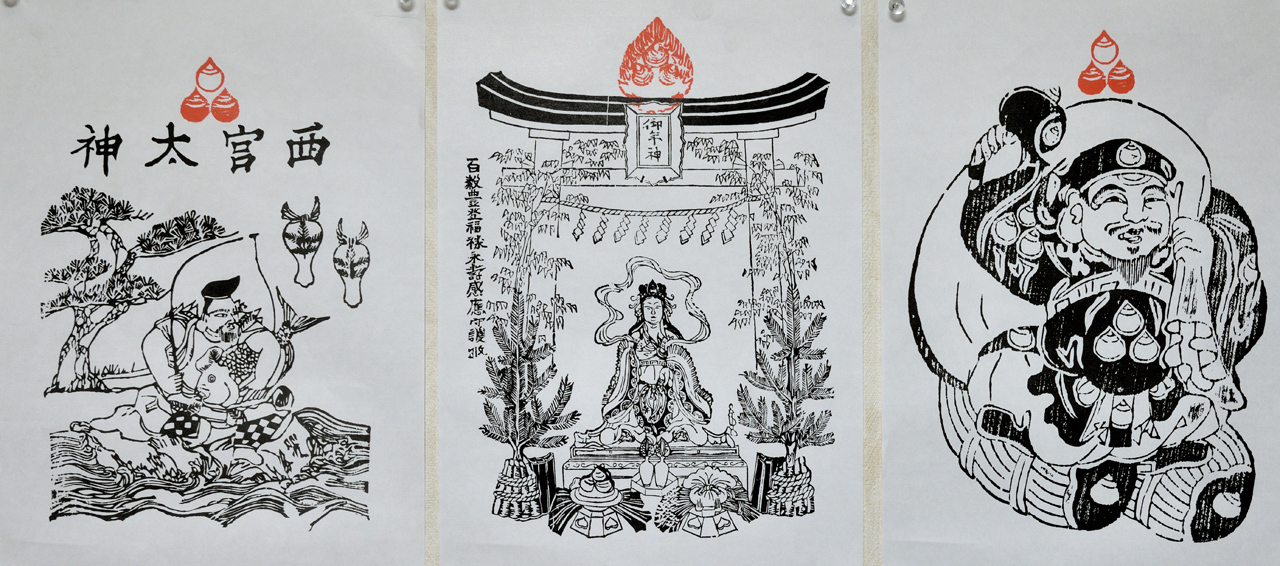 西宮太神
御年神
百穀豊登福禄永寿感應護